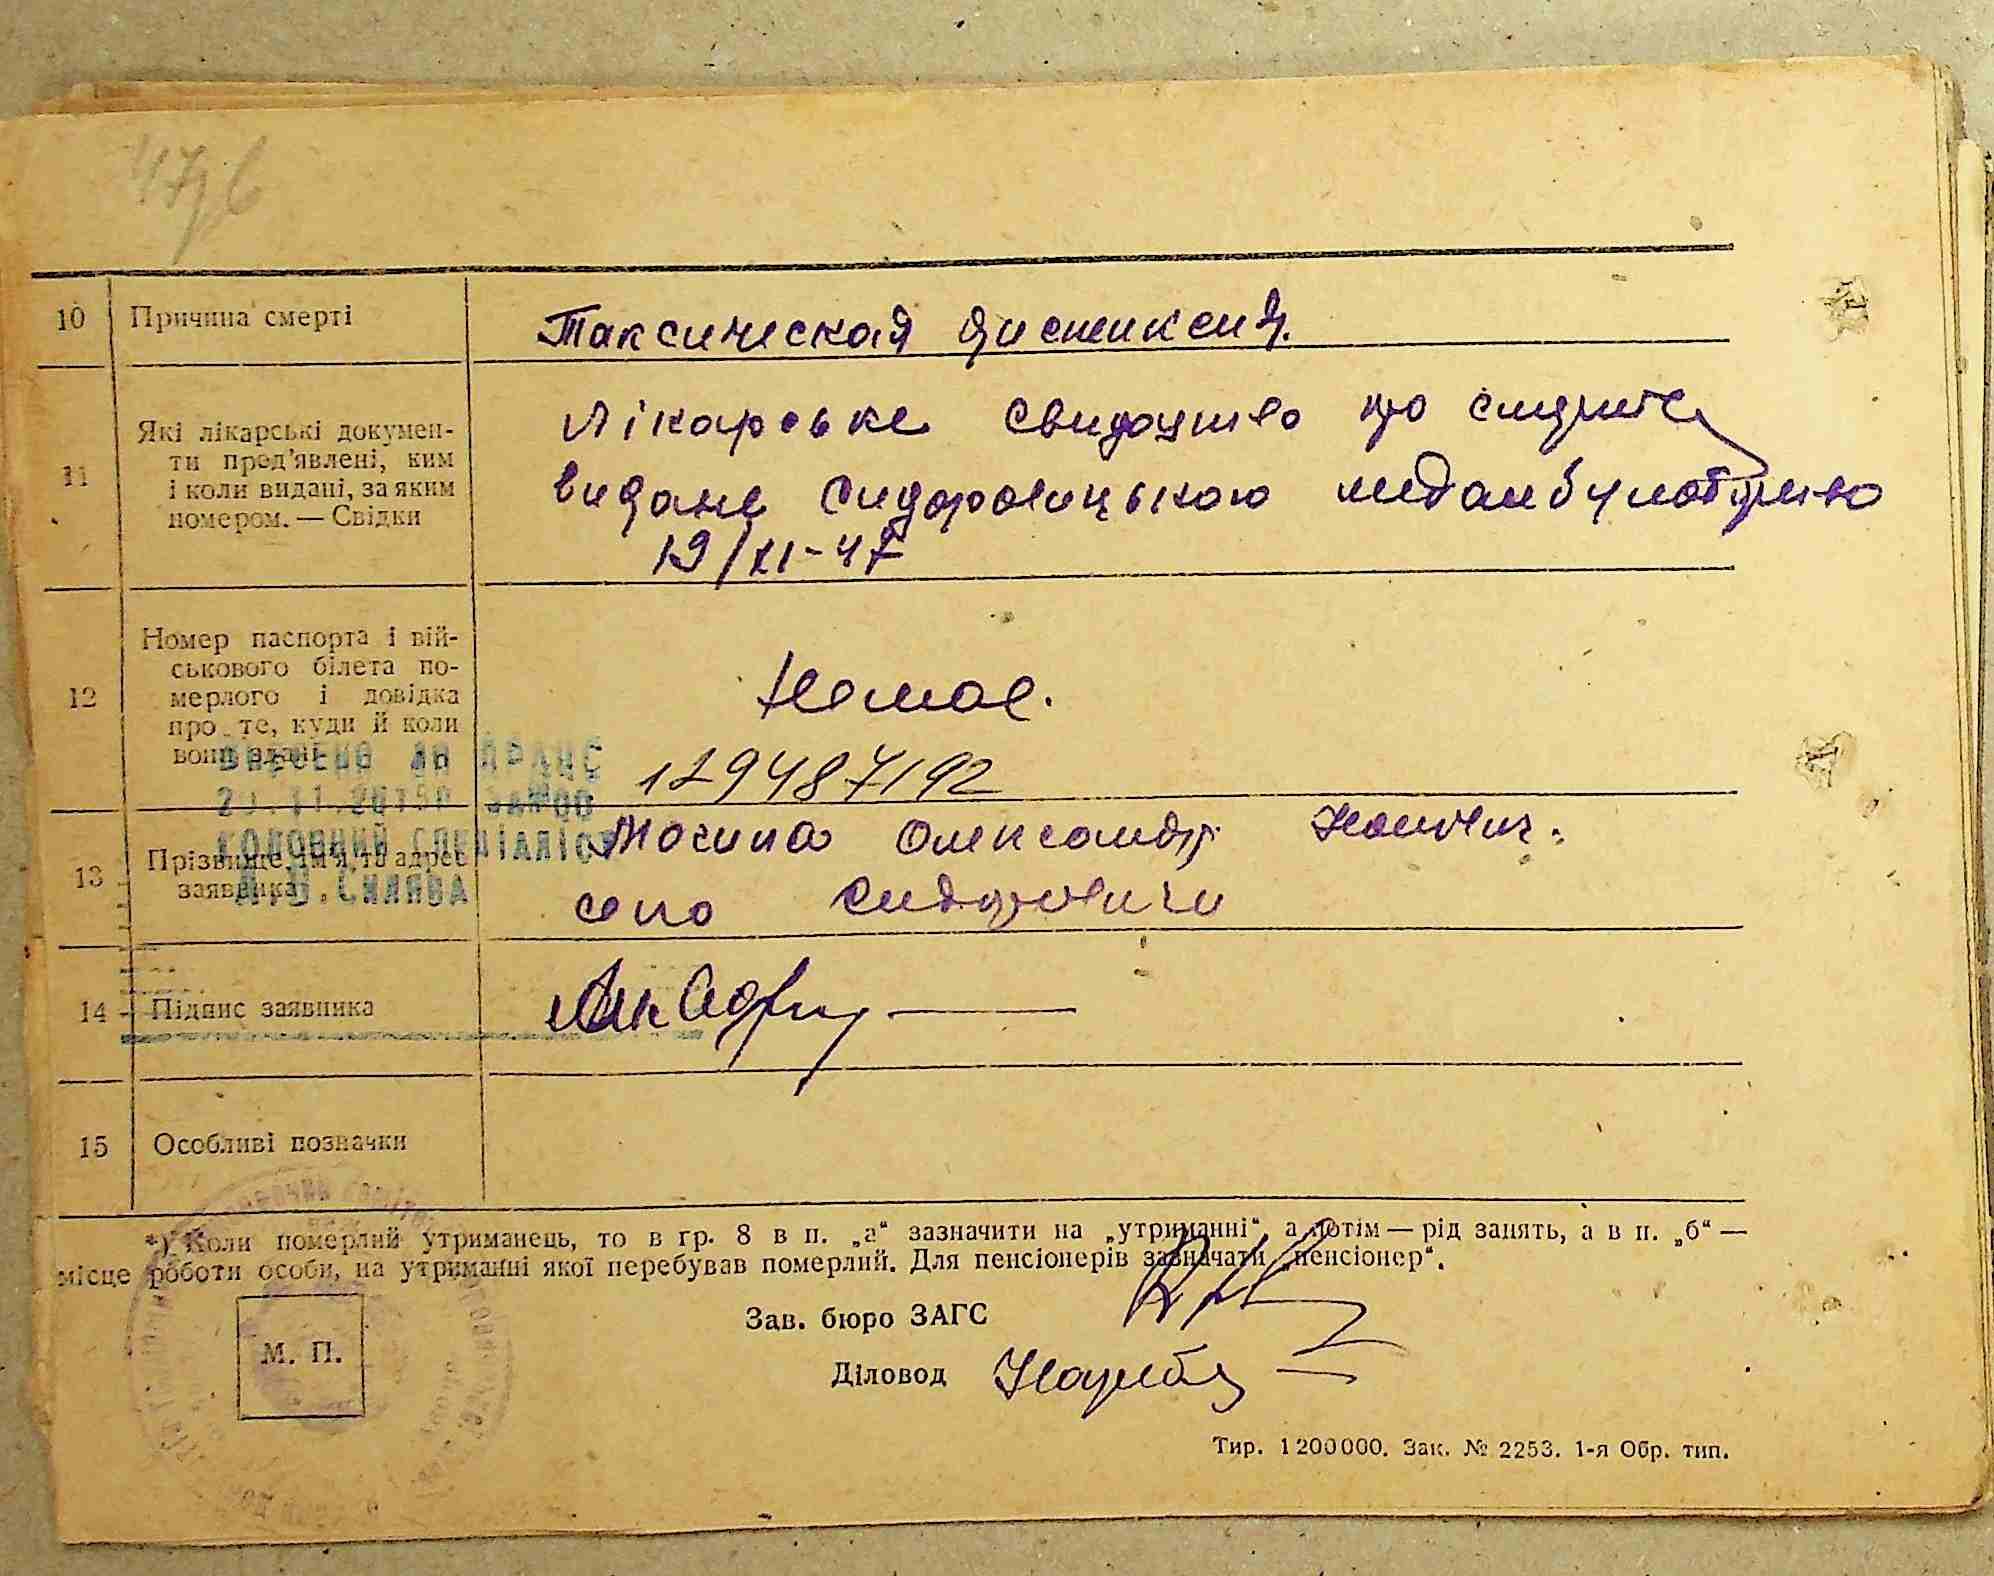 47
10 Причина смерті
Таксическая диспепсия.
11 Які лікарські докумен-
ти пред'явлені, ким
і коли видані, за яким
номером. — Свідки
Лікарське свидоцтво про смерть
видане Сидоровицькою медамбулаторією
19/XI-47
12 Номер паспорта і вій-
ськового білета по-
мерлого і довідка
про те, куди й коли
вони здані
Немає.
129487192
ВНЕСЕНО ДО ДРАЦС
ГОЛОВНИЙ СПЕЦІАЛІСТ
13 Прізвище, ім'я та адрес
заявника
Олександр
село Сидоровичи
14 Підпис заявника
15 Особливі позначки
*) Коли померлий утриманець, то в гр. 8 в п. „а“ зазначити на „утриманні“, а потім — рід занять, а в п. „б“ —
місце роботи особи, на утриманні якої перебував померлий. Для пенсіонерів зазначати „пенсіонер“.
Зав. бюро ЗАГС
М. П.
Діловод
Тир. 1200000. Зак. № 2253. 1-я Обр. тип.